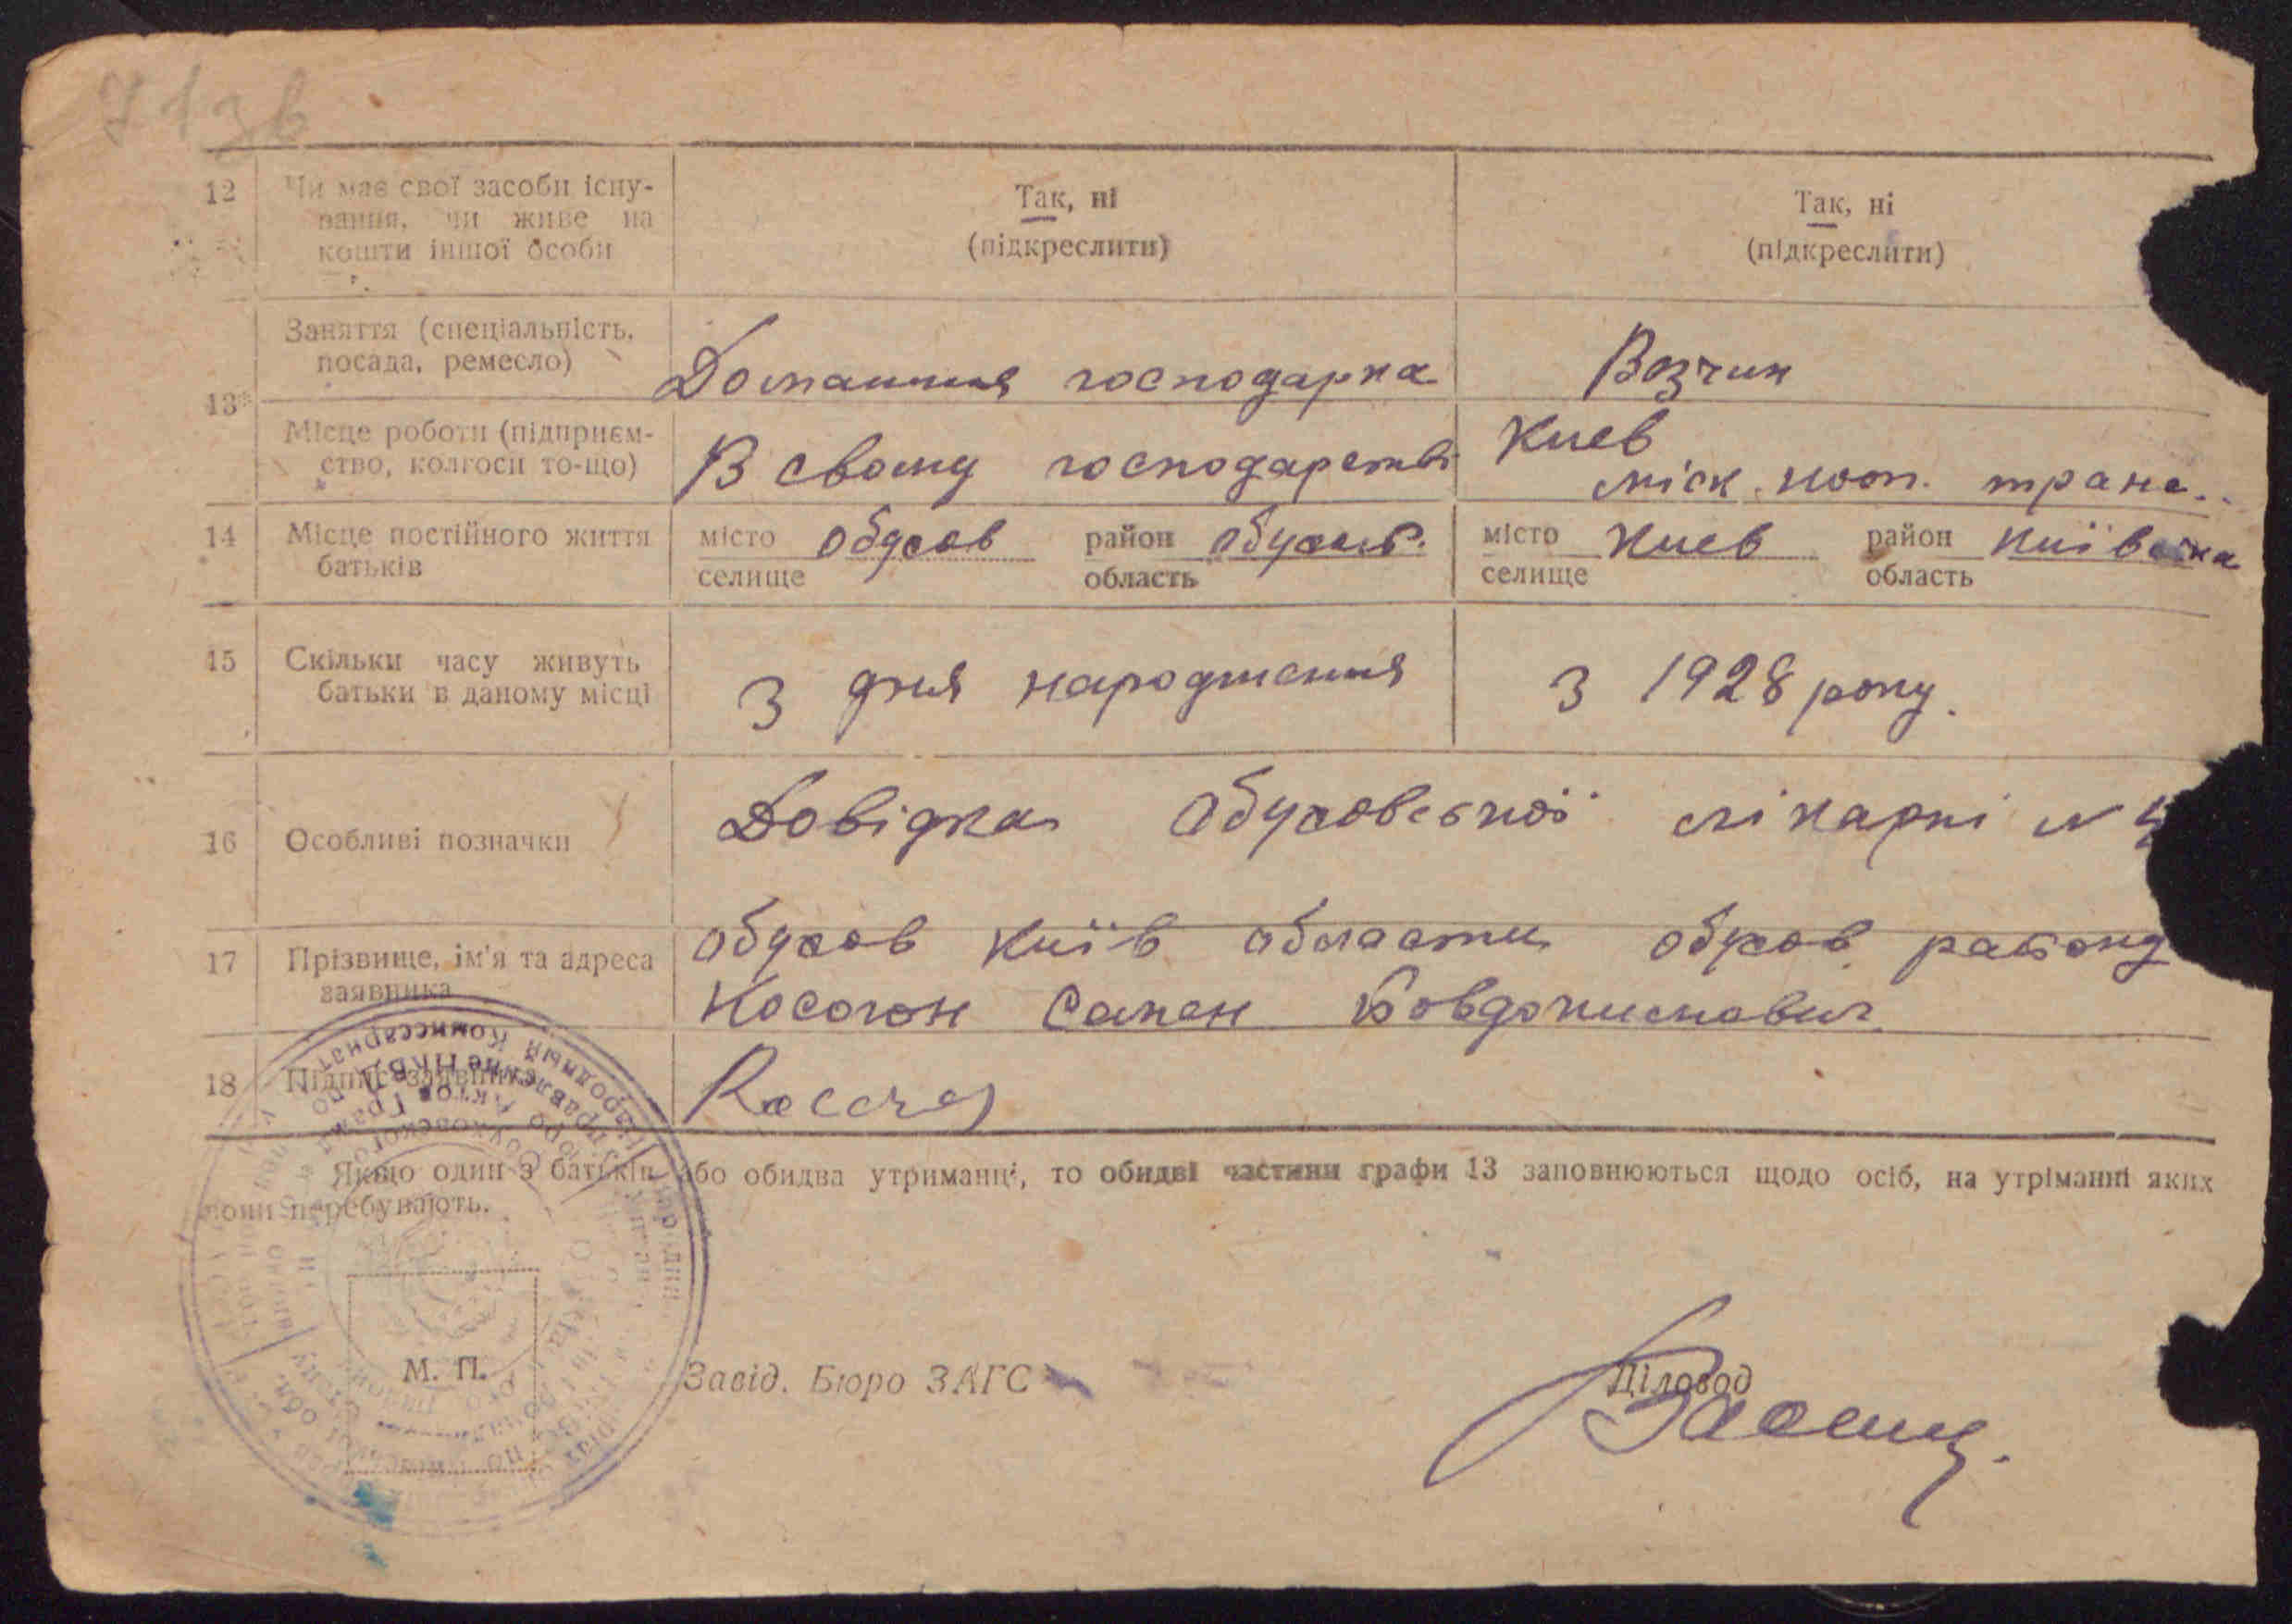 71зв
12 Чи має свої засоби існу- Так, ні Так, ні
вання, чи живе на (підкреслити) (підкреслити)
кошти іншої особи
13 Заняття (спеціальність, Домашння господарка Возчик
посада, ремесло)
Місце роботи (підприєм- В свому господарстві Киев
ство, колгосп то-що) міск. транс..
14 Місце постійного життя місто Обухов район Обухов. місто Киев район Київська
батьків селище область селище область
15 Скільки часу живуть З дня народження З 1928 року.
батьки в даному місці
16 Особливі позначки Довідка Обуховської лікарні N
17 Прізвище, ім'я та адреса Обухов Київ області Обухов району
заявника Косогон Семен
18 Підпис заявника
Якщо один з батьків або обидва утриманці, то обидві частини графи 13 заповнюються щодо осіб, на утриманні яких
вони перебувають.
М. П.
Завід. Бюро ЗАГС Діловод